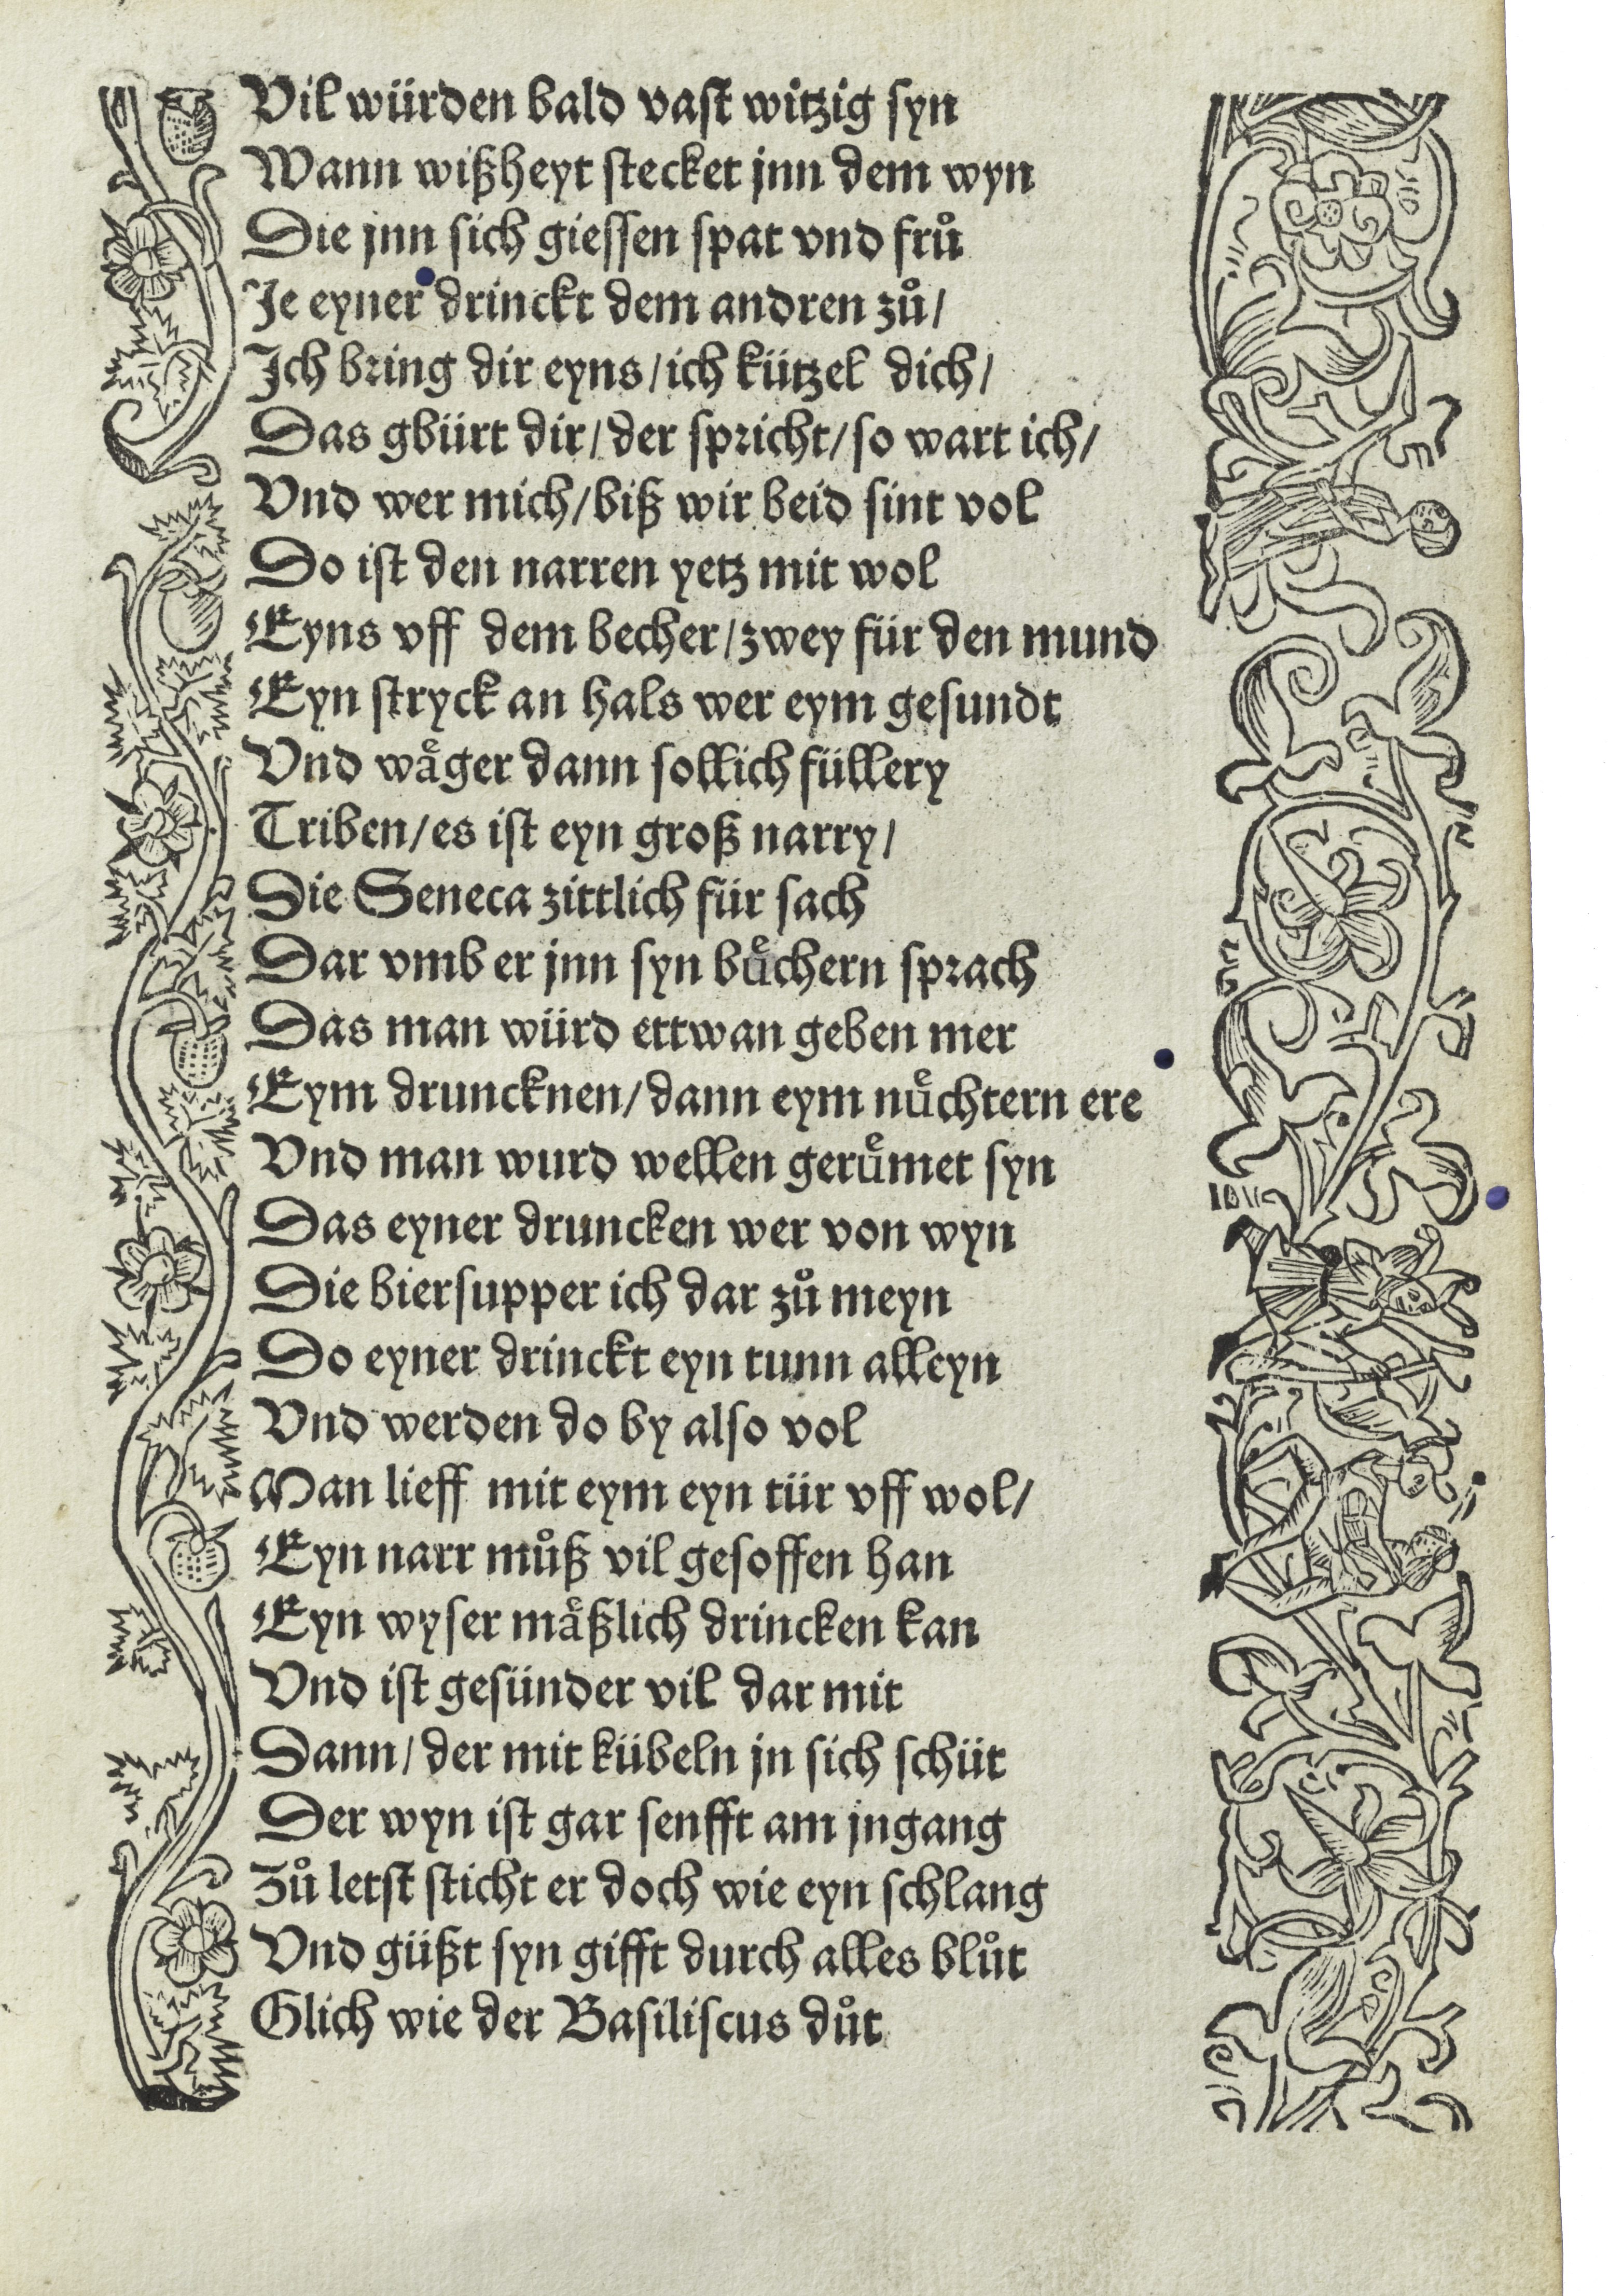 Vil würden bald vast witzig syn
Wann wißheyt stecket jnn dem wyn
Die jnn sich giessen spat vnd frů
Je eyner drinckt dem andren zů/
Ich bring dir eyns/ich kützel dich/
Das gbürt dir/der spricht/so wart ich/
Vnd wer mich/biß wir beid sint vol
Do ist den narren yetz mit wol
Eyns vff dem becher/zwey für den mund
Eyn stryck an hals wer eym gesundt
Vnd waͤger dann sollich füllery
Triben/es ist eyn groß narry/
Die Seneca zittlich für sach
Dar vmb er jnn syn buͤchern sprach
Das man würd ettwan geben mer
Eym druncknen/dann eym nuͤchtern ere
Vnd man wurd wellen geruͤmet syn
Das eyner druncken wer von wyn
Die biersupper ich dar zů meyn
Do eyner drinckt eyn tunn alleyn
Vnd werden do by also vol
Man lieff mit eym eyn tür vff wol/
Eyn narr můß vil gesoffen han
Eyn wyser maͤßlich drincken kan
Vnd ist gesünder vil dar mit
Dann/der mit kübeln jn sich schüt
Der wyn ist gar senfft am jngang
Zů letst sticht er doch wie eyn schlang
Vnd güßt syn gifft durch alles blůt
Glich wie der Basiliscus důt